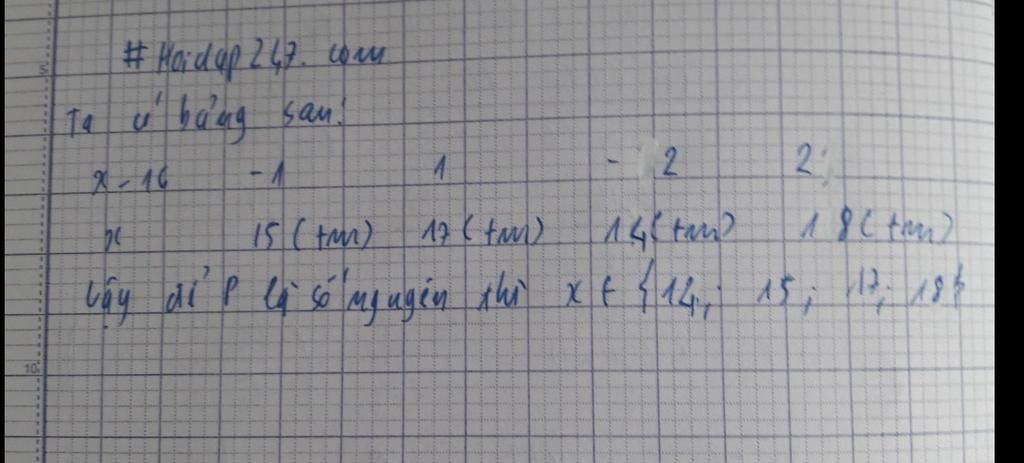 # Hoidap247.com
Ta có bảng sau:
x-16 -1 1 -2 2
x 15 (tm) 17 (tm) 14 (tm) 18 (tm)
Vậy để P là số nguyên thì x ∈ {14; 15; 17; 18}
5
10